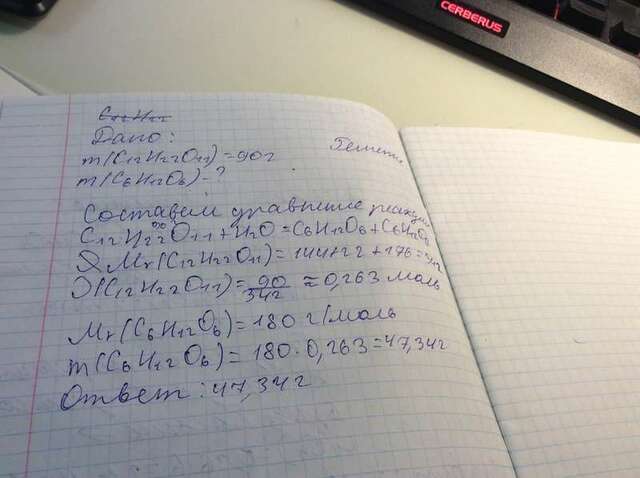 CERBERUS
C12H22
Дано:
m(C12H22O11)=90г
m(C6H12O6)-?
Решение
Составим уравнение реакции
C12H22O11+H2O=C6H12O6+C6H12O6
Mr(C12H22O11)=144+22+176=342
(C12H22O11)=90/342≈0,263 моль
Mr(C6H12O6)=180 г/моль
m(C6H12O6)=180·0,263=47,34г
Ответ: 47,34г